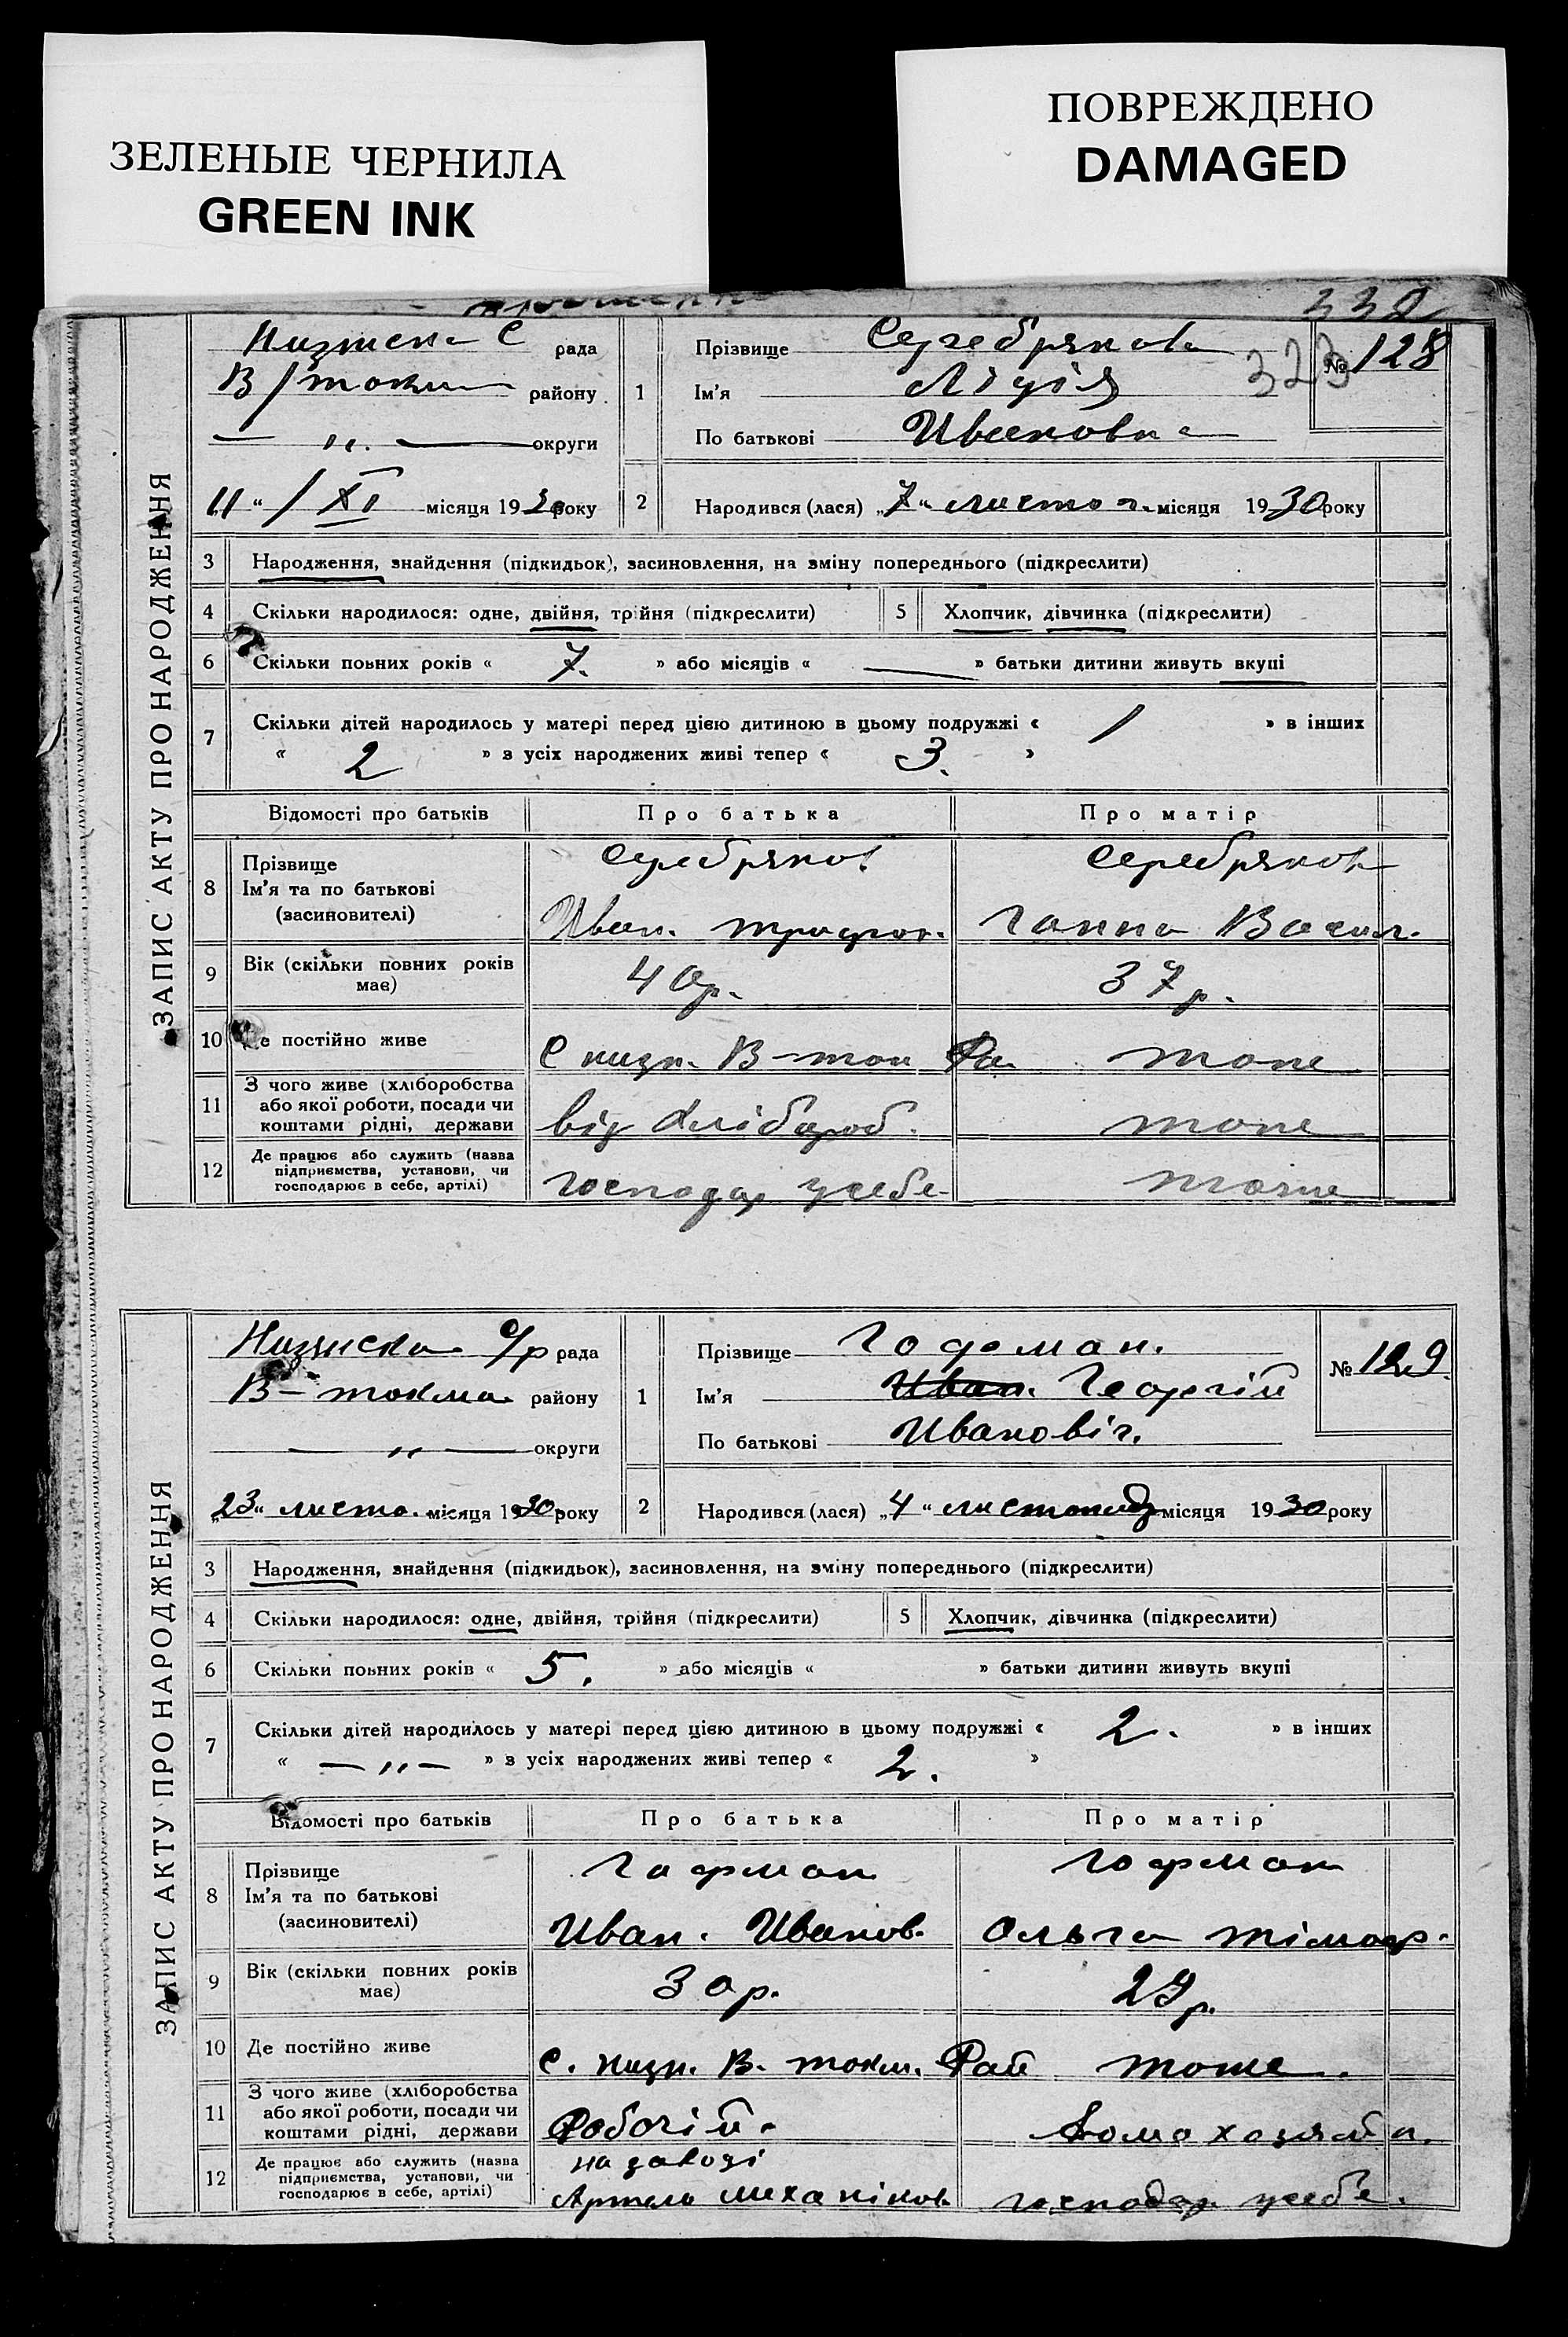 ЗЕЛЕНЫЕ ЧЕРНИЛА
GREEN INK
ПОВРЕЖДЕНО
DAMAGED
ЗАПИС АКТУ ПРО НАРОДЖЕННЯ
рада
В/ району
— „ — округи
„11“ / XI місяця 1930 року
№ 128
323
1 Прізвище Серебрякова
Ім'я Лідія
По батькові Ивановна
2 Народився (лася) „7“ листоп. місяця 1930 року
3 Народження, знайдення (підкидьок), засиновлення, на зміну попереднього (підкреслити)
4 Скільки народилося: одне, двійня, трійня (підкреслити) 5 Хлопчик, дівчинка (підкреслити)
6 Скільки повних років « 7. » або місяців « — » батьки дитини живуть вкупі
7 Скільки дітей народилось у матері перед цією дитиною в цьому подружжі « 1 » в інших
« 2 » з усіх народжених живі тепер « 3. »
Відомості про батьків Про батька Про матір
8 Прізвище
Ім'я та по батькові
(засиновителі)
Серебряков
Иван. Трифон.
Серебряков
Ганна Васил.
9 Вік (скільки повних років має) 40 р. 37 р.
10 Де постійно живе С низн. В-ток Ра тоже
11 З чого живе (хліборобства
або якої роботи, посади чи
коштами рідні, держави
від хлібороб. тоже
12 Де працює або служить (назва
підприємства, установи, чи
господарює в себе, артілі)
господар у себе тоже
ЗАПИС АКТУ ПРО НАРОДЖЕННЯ
с/р рада
В-токма району
— „ — округи
„23“ листо. місяця 1930 року
№ 129.
1 Прізвище Гофман.
Ім'я Иван. Георгій
По батькові Ивановіч.
2 Народився (лася) „4“ листопад місяця 1930 року
3 Народження, знайдення (підкидьок), засиновлення, на зміну попереднього (підкреслити)
4 Скільки народилося: одне, двійня, трійня (підкреслити) 5 Хлопчик, дівчинка (підкреслити)
6 Скільки повних років « 5. » або місяців « » батьки дитини живуть вкупі
7 Скільки дітей народилось у матері перед цією дитиною в цьому подружжі « 2. » в інших
« — „ — » з усіх народжених живі тепер « 2. »
Відомості про батьків Про батька Про матір
8 Прізвище
Ім'я та по батькові
(засиновителі)
Гофман
Иван. Иванов.
Гофман
Ольга Тімоф.
9 Вік (скільки повних років має) 30 р. 29 р.
10 Де постійно живе С. низн. В. токм. Рай тоже.
11 З чого живе (хліборобства
або якої роботи, посади чи
коштами рідні, держави
Робочій. Домохозяйка.
12 Де працює або служить (назва
підприємства, установи, чи
господарює в себе, артілі)
на заводі
Артель механіков господар у себе.